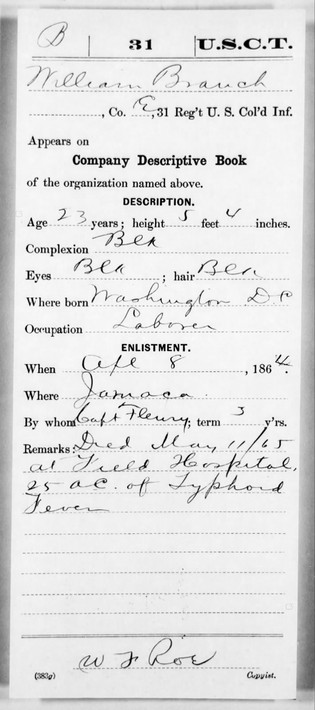 B | 31 | U.S.C.T.
William Branch
, Co. E, 31 Reg't U. S. Col'd Inf.
Appears on
Company Descriptive Book
of the organization named above.
DESCRIPTION.
Age 23 years; height 5 feet 4 inches.
Complexion Blk
Eyes Blk ; hair Blk
Where born Washington D C
Occupation Laborer
ENLISTMENT.
When Apl 8 , 1864.
Where Jamaca
By whom Capt Fleury; term 3 y'rs.
Remarks: Died May 11/65
at Field Hospital,
25 A.C. of Typhoid
Fever
W F Roe
(383g) Copyist.